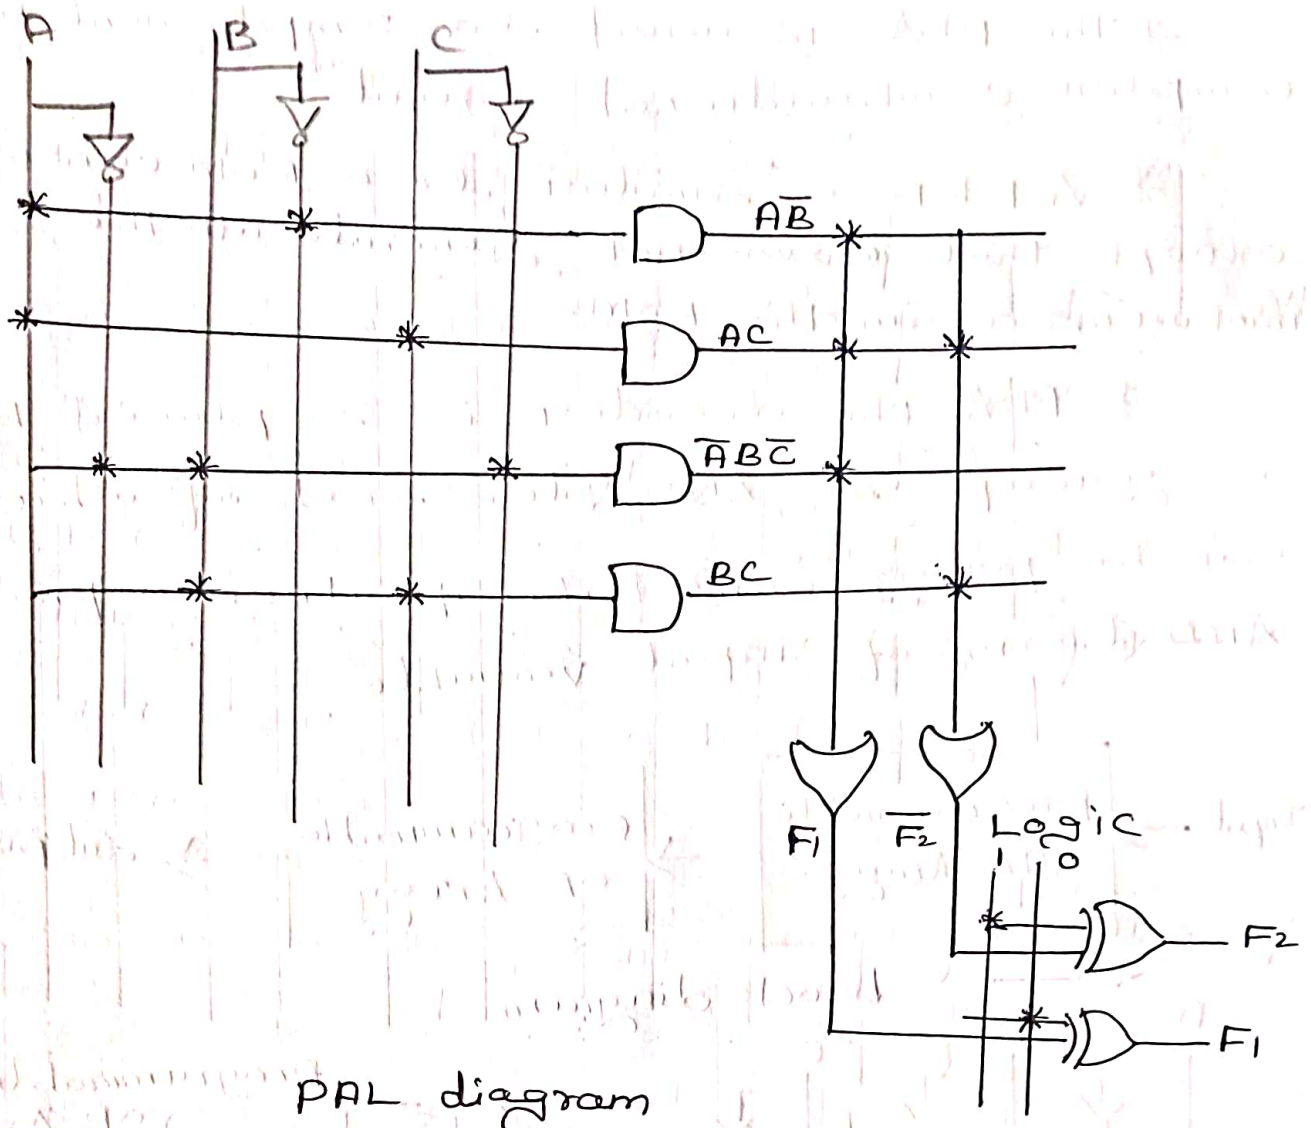 A B C
AB̅
AC
A̅BC̅
BC
F1 F̅2̅ Logic
1 0
F2
F1
PAL diagram